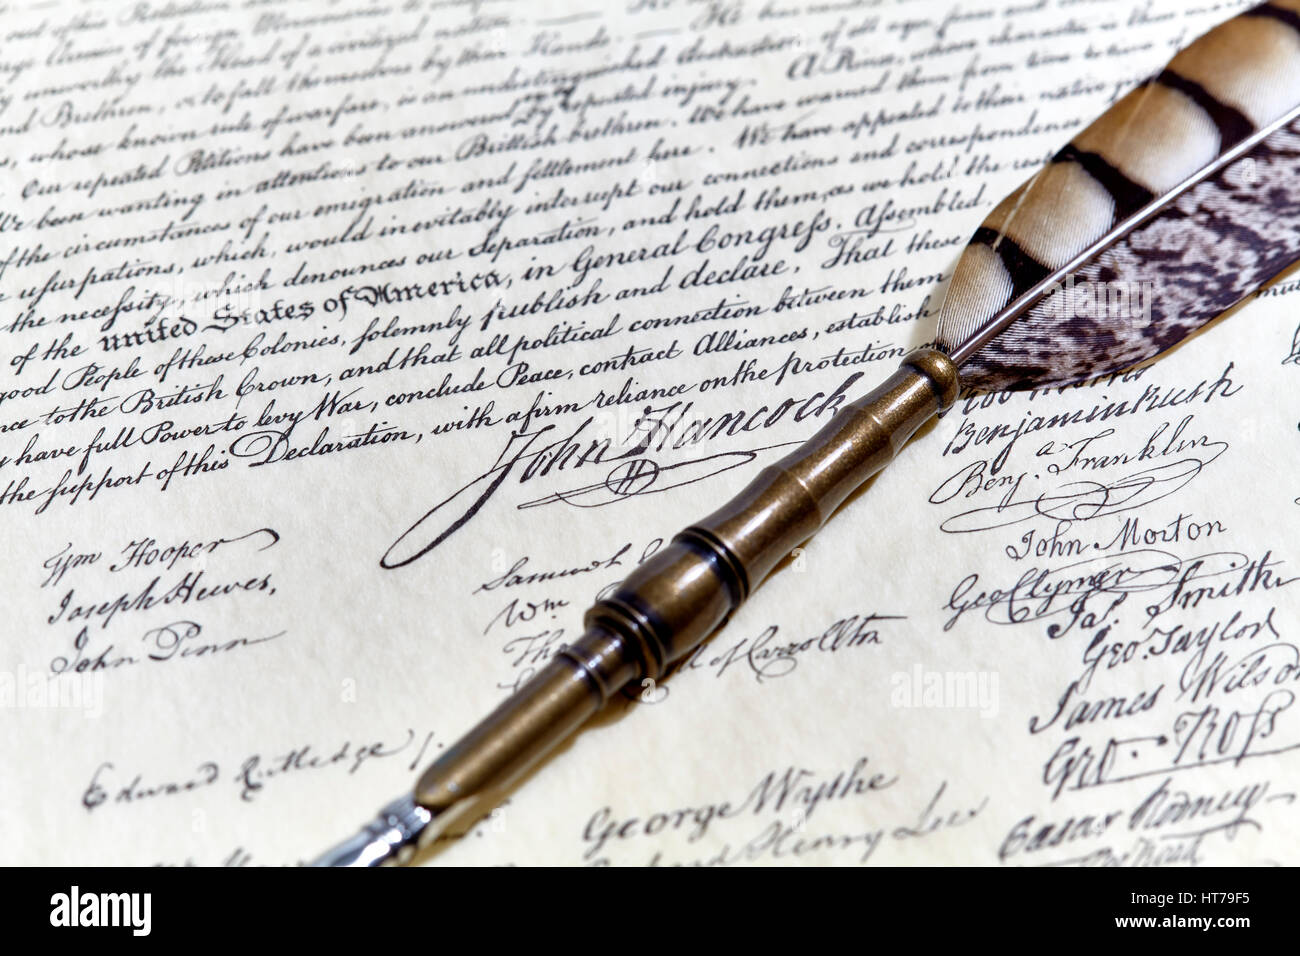 out of this Protection
of foreign Mercenaries to
unworthy the Head of a civilized nation. He has
Brethren, or to fall themselves by their Hands. He has
whose known rule of warfare, is an undistinguished destruction of all ages
Our repeated Petitions have been answered by repeated injury. A Prince, whose character is
been wanting in attentions to our Brittish brethren. We have warned them from time to time of
of the circumstances of our emigration and settlement here. We have appealed to their native
usurpations, which, would inevitably interrupt our connections and correspondence
the necessity, which denounces our Separation, and hold them, as we hold the rest
of the united States of America, in General Congress, Assembled,
good People of these Colonies, solemnly publish and declare, That these
to the British Crown, and that all political connection between them
have full Power to levy War, conclude Peace, contract Alliances, establish
the support of this Declaration, with a firm reliance on the protection
John Hancock
Benjamin Rush
Benj. a Franklin
John Morton
Geo Clymer
Jas. Smith
Geo. Taylor
James Wilson
Geo. Ross
Caesar Rodney
Wm Hooper
Joseph Hewes,
John Penn
Wm
of Carrollton
Edward Rutledge /.
George Wythe
Henry Lee
alamy stock photo
HT79F5
www.alamy.com